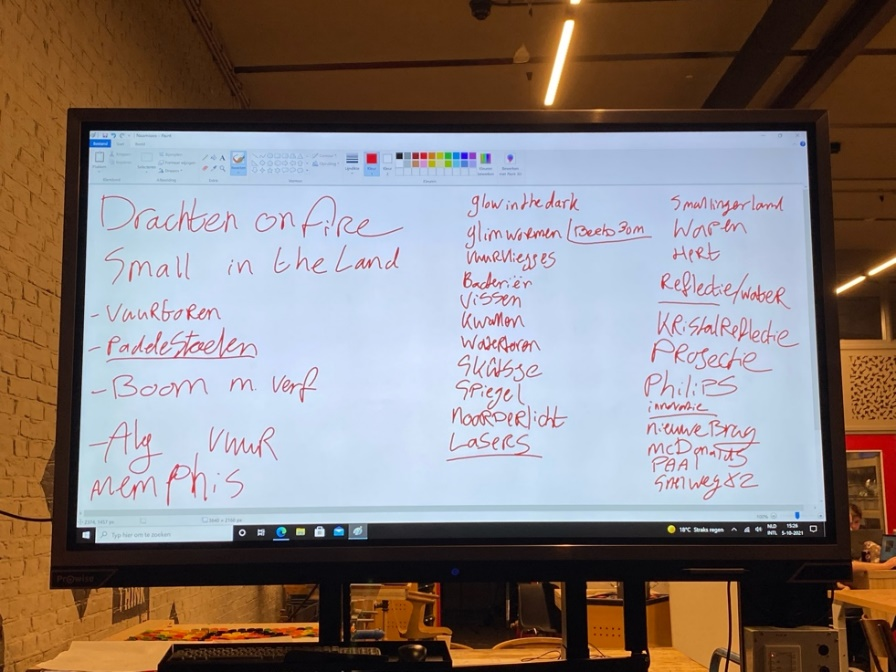 Drachten on fire
Small in the Land
- Vuurtoren
- Paddestoelen
- Boom m. verf
- Alg vuur
Memphis
glow in the dark
glimwormen / Beeb 30m
vuurvliegjes
Bacteriën
Vissen
Kwallen
Watertoren
Skûtsje
Spiegel
Noorderlicht
LASERS
Smallingerland
Wapen
Hert
Reflectie/water
Kristal Reflectie
Projectie
Philips
innovatie
nieuwe Brug
McDonalds
PAAL
Typ hier om te zoeken
18°C Straks regen
NLD
INTL
15:26
5-10-2021
Prowise
THINK